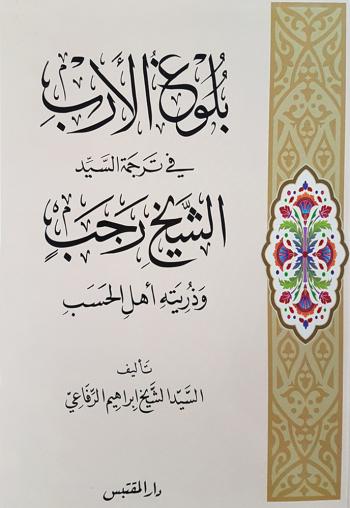 بُلُوغُ الأَرَبِ
في تَرجَمة السَّيِّد
الشَّيْخِ رَجَبٍ
وَذُرِيَّتِهِ أهلِ الحَسَبِ
تأليف
السَّيِّد الشَّيخ إبراهيم الرِّفاعيّ
دار المقتبس